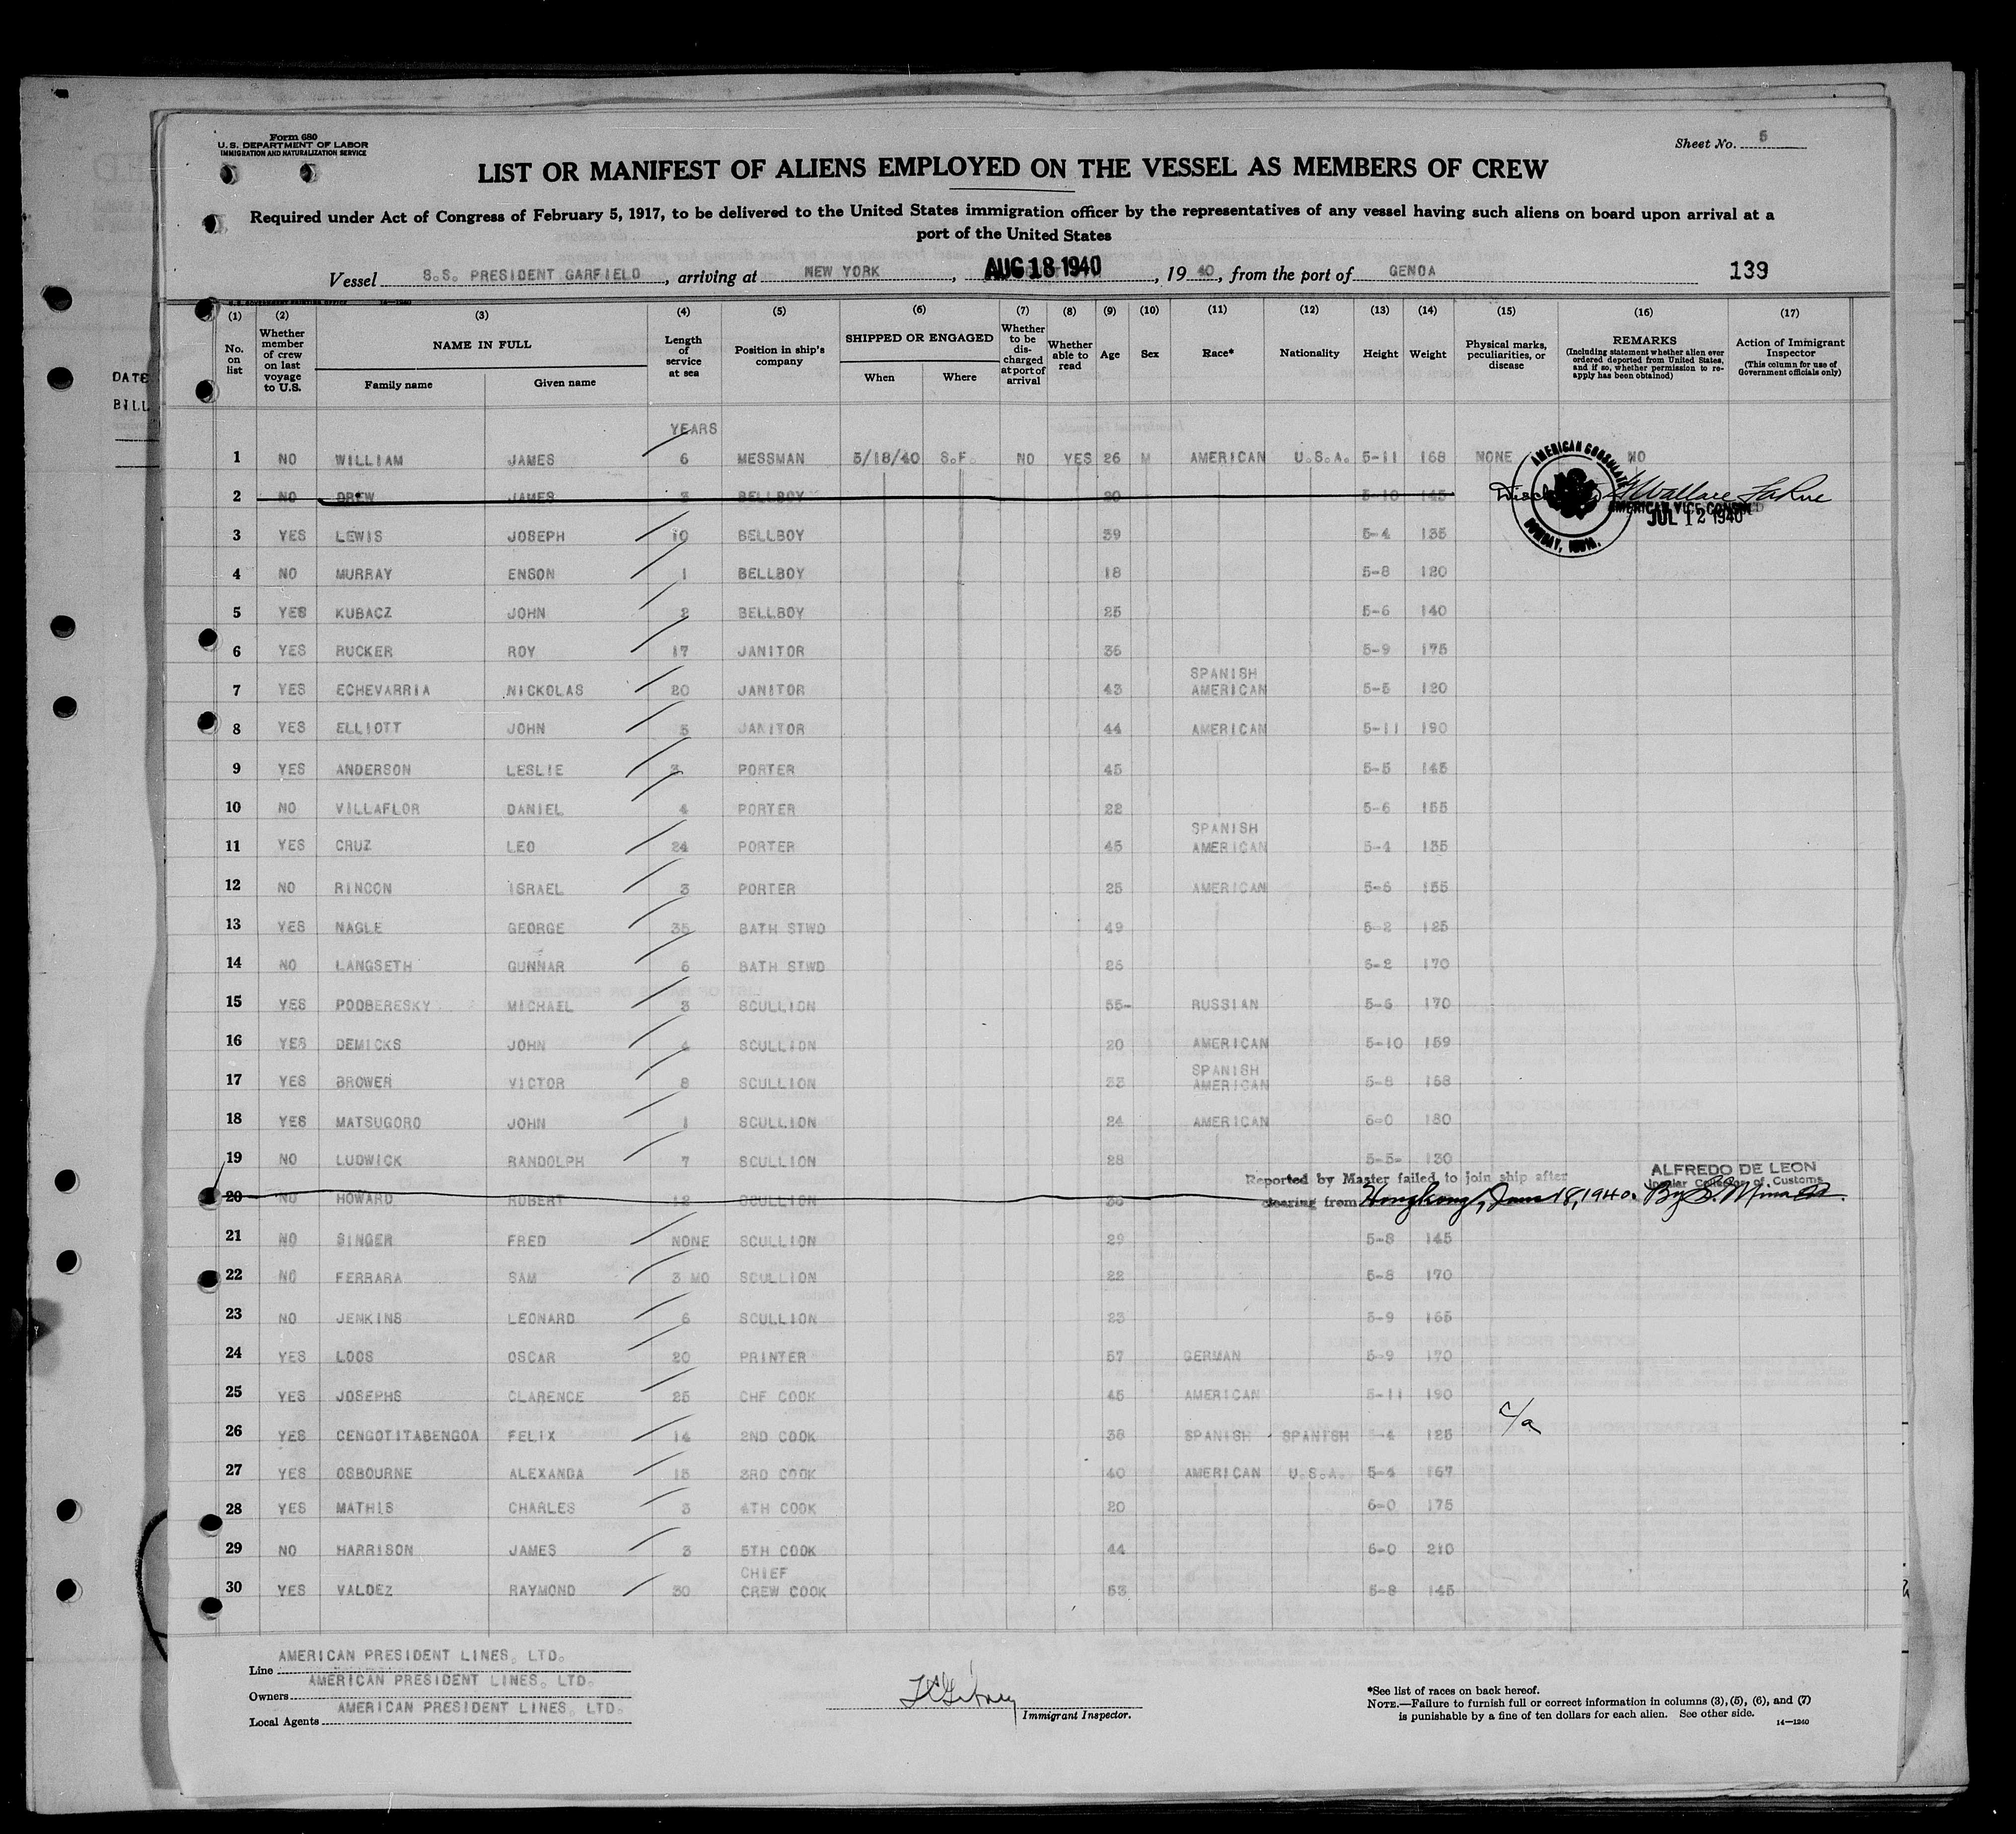 Form 680
U. S. DEPARTMENT OF LABOR
IMMIGRATION AND NATURALIZATION SERVICE
Sheet No. 5
LIST OR MANIFEST OF ALIENS EMPLOYED ON THE VESSEL AS MEMBERS OF CREW
Required under Act of Congress of February 5, 1917, to be delivered to the United States immigration officer by the representatives of any vessel having such aliens on board upon arrival at a
port of the United States
Vessel S.S. PRESIDENT GARFIELD, arriving at NEW YORK, AUG 18 1940, 19 40, from the port of GENOA 139
(1) (2) (3) (4) (5) (6) (7) (8) (9) (10) (11) (12) (13) (14) (15) (16) (17)
No. on list
Whether member of crew on last voyage to U.S.
NAME IN FULL
Family name Given name
Length of service at sea
Position in ship's company
SHIPPED OR ENGAGED
When Where
Whether to be discharged at port of arrival
Whether able to read
Age
Sex
Race*
Nationality
Height
Weight
Physical marks, peculiarities, or disease
REMARKS
(Including statement whether alien ever ordered deported from United States, and if so, whether permission to reapply has been obtained)
Action of Immigrant Inspector
(This column for use of Government officials only)
DATE
BILL
YEARS
1 NO WILLIAM JAMES 6 MESSMAN 5/18/40 S.F. NO YES 26 M AMERICAN U.S.A. 5-11 168 NONE NO
2 NO DREW JAMES 3 BELLBOY 20 5-10 145
AMERICAN CONSULATE BOMBAY, INDIA.
Wallace LaRue
AMERICAN VICE CONSUL
JUL 12 1940
3 YES LEWIS JOSEPH 10 BELLBOY 39 5-4 135
4 NO MURRAY ENSON 1 BELLBOY 18 5-8 120
5 YES KUBACZ JOHN 2 BELLBOY 25 5-6 140
6 YES RUCKER ROY 17 JANITOR 36 5-9 175
7 YES ECHEVARRIA NICKOLAS 20 JANITOR 43 SPANISH AMERICAN 5-5 120
8 YES ELLIOTT JOHN 5 JANITOR 44 AMERICAN 5-11 190
9 YES ANDERSON LESLIE 3 PORTER 45 5-5 145
10 NO VILLAFLOR DANIEL 4 PORTER 22 5-6 155
11 YES CRUZ LEO 24 PORTER 45 SPANISH AMERICAN 5-4 135
12 NO RINCON ISRAEL 3 PORTER 25 AMERICAN 5-6 155
13 YES NAGLE GEORGE 35 BATH STWD 49 5-2 125
14 NO LANGSETH GUNNAR 6 BATH STWD 26 6-2 170
15 YES PODBERESKY MICHAEL 3 SCULLION 55 RUSSIAN 5-6 170
16 YES DEMICKS JOHN 4 SCULLION 20 AMERICAN 5-10 159
17 YES BROWER VICTOR 8 SCULLION 33 SPANISH AMERICAN 5-8 158
18 YES MATSUGORO JOHN 1 SCULLION 24 AMERICAN 6-0 180
19 NO LUDWICK RANDOLPH 7 SCULLION 28 5-5 130
20 NO HOWARD ROBERT 12 SCULLION 36
Reported by Master failed to join ship after
clearing from Hongkong, June 18, 1940.
ALFREDO DE LEON
Insular Collector of Customs
21 NO SINGER FRED NONE SCULLION 29 5-8 145
22 NO FERRARA SAM 3 MO SCULLION 22 5-8 170
23 NO JENKINS LEONARD 6 SCULLION 23 5-9 165
24 YES LOOS OSCAR 20 PRINTER 57 GERMAN 5-9 170
25 YES JOSEPHS CLARENCE 25 CHF COOK 45 AMERICAN 5-11 190
26 YES CENGOTITABENGOA FELIX 14 2ND COOK 38 SPANISH SPANISH 5-4 125 c/a
27 YES OSBOURNE ALEXANDA 15 3RD COOK 40 AMERICAN U.S.A. 5-4 167
28 YES MATHIS CHARLES 3 4TH COOK 20 6-0 175
29 NO HARRISON JAMES 3 5TH COOK 44 6-0 210
30 YES VALDEZ RAYMOND 30 CHIEF CREW COOK 53 5-8 145
Line AMERICAN PRESIDENT LINES, LTD.
Owners AMERICAN PRESIDENT LINES, LTD.
Local Agents AMERICAN PRESIDENT LINES, LTD.
Immigrant Inspector.
*See list of races on back hereof.
NOTE.—Failure to furnish full or correct information in columns (3), (5), (6), and (7)
is punishable by a fine of ten dollars for each alien. See other side.
14—1240